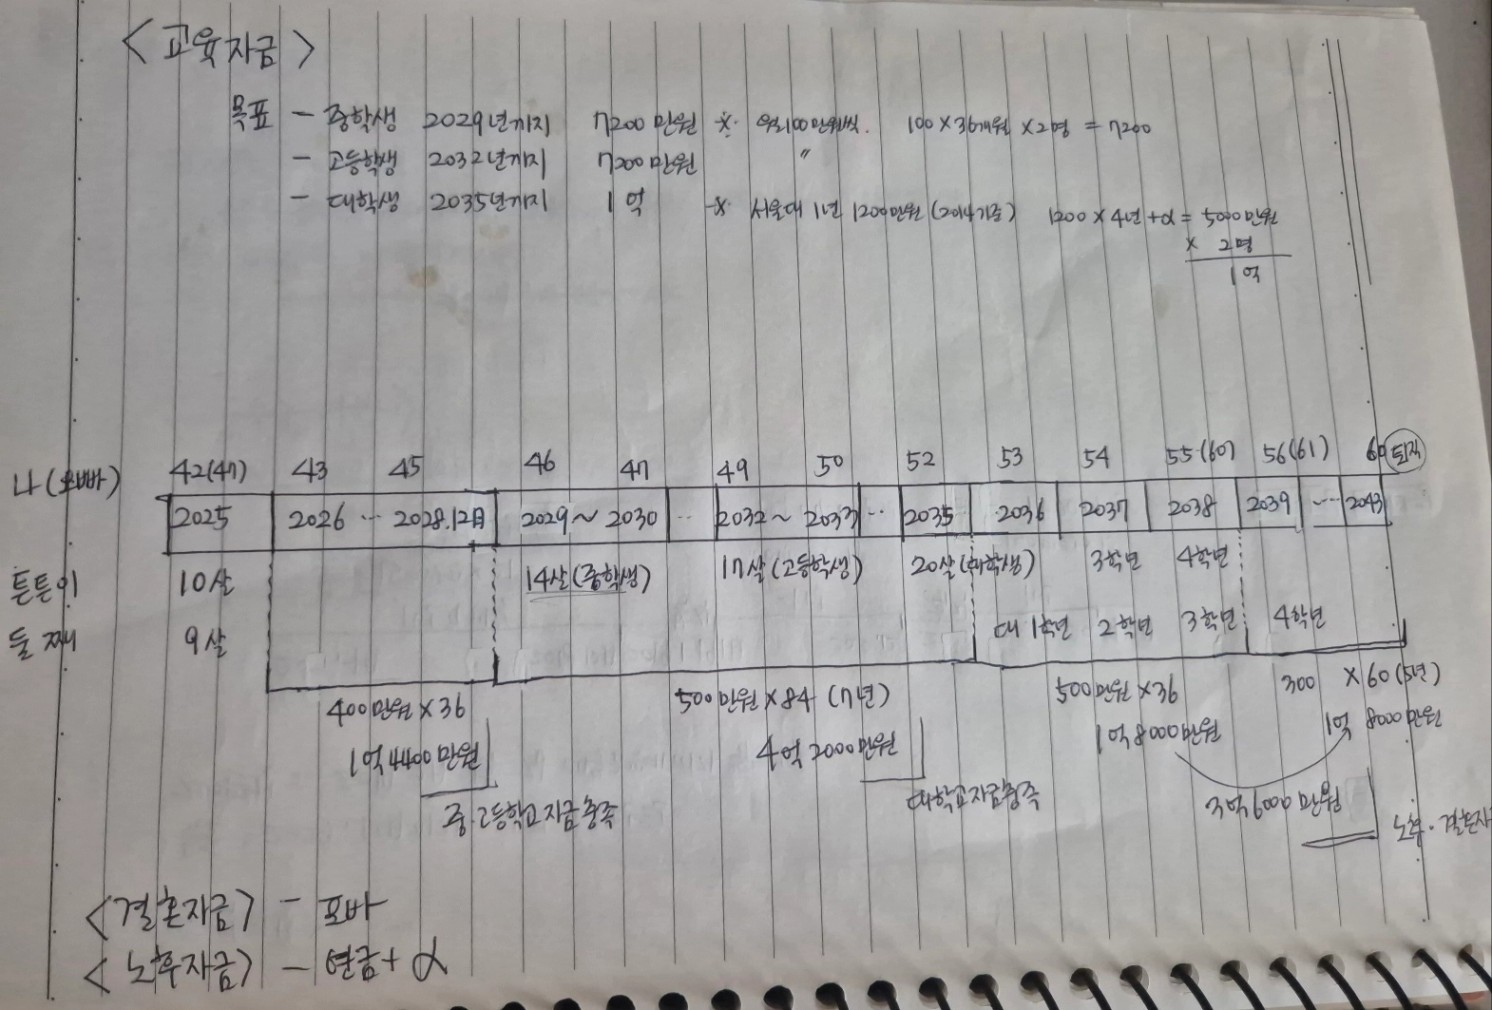 <교육자금>
목표 - 중학생 2029년까지 7200만원 ※ 월100만원씩. 100×36개월×2명 = 7200
- 고등학생 2032년까지 7200만원 〃
- 대학생 2035년까지 1억 ※ 서울대 1년 1200만원(2014기준) 1200×4년+α = 5000만원
× 2명
1억
나(오빠) 42(47) 43 45 46 47 49 50 52 53 54 55(60) 56(61) 60 퇴직
2025 2026 … 2028.12月 2029~2030 … 2032~2033 … 2035 2036 2037 2038 2039 … 2043
튼튼이 10살 14살(중학생) 17살(고등학생) 20살(대학생) 3학년 4학년
둘째 9살 대1학년 2학년 3학년 4학년
400만원×36 500만원×84 (7년) 500만원×36 300 ×60(5년)
1억4400만원 4억2000만원 1억8000만원 1억 8000만원
중·고등학교자금충족 대학교자금충족 3억6000만원 노후·결혼자
<결혼자금> -
<노후자금> - 연금+α